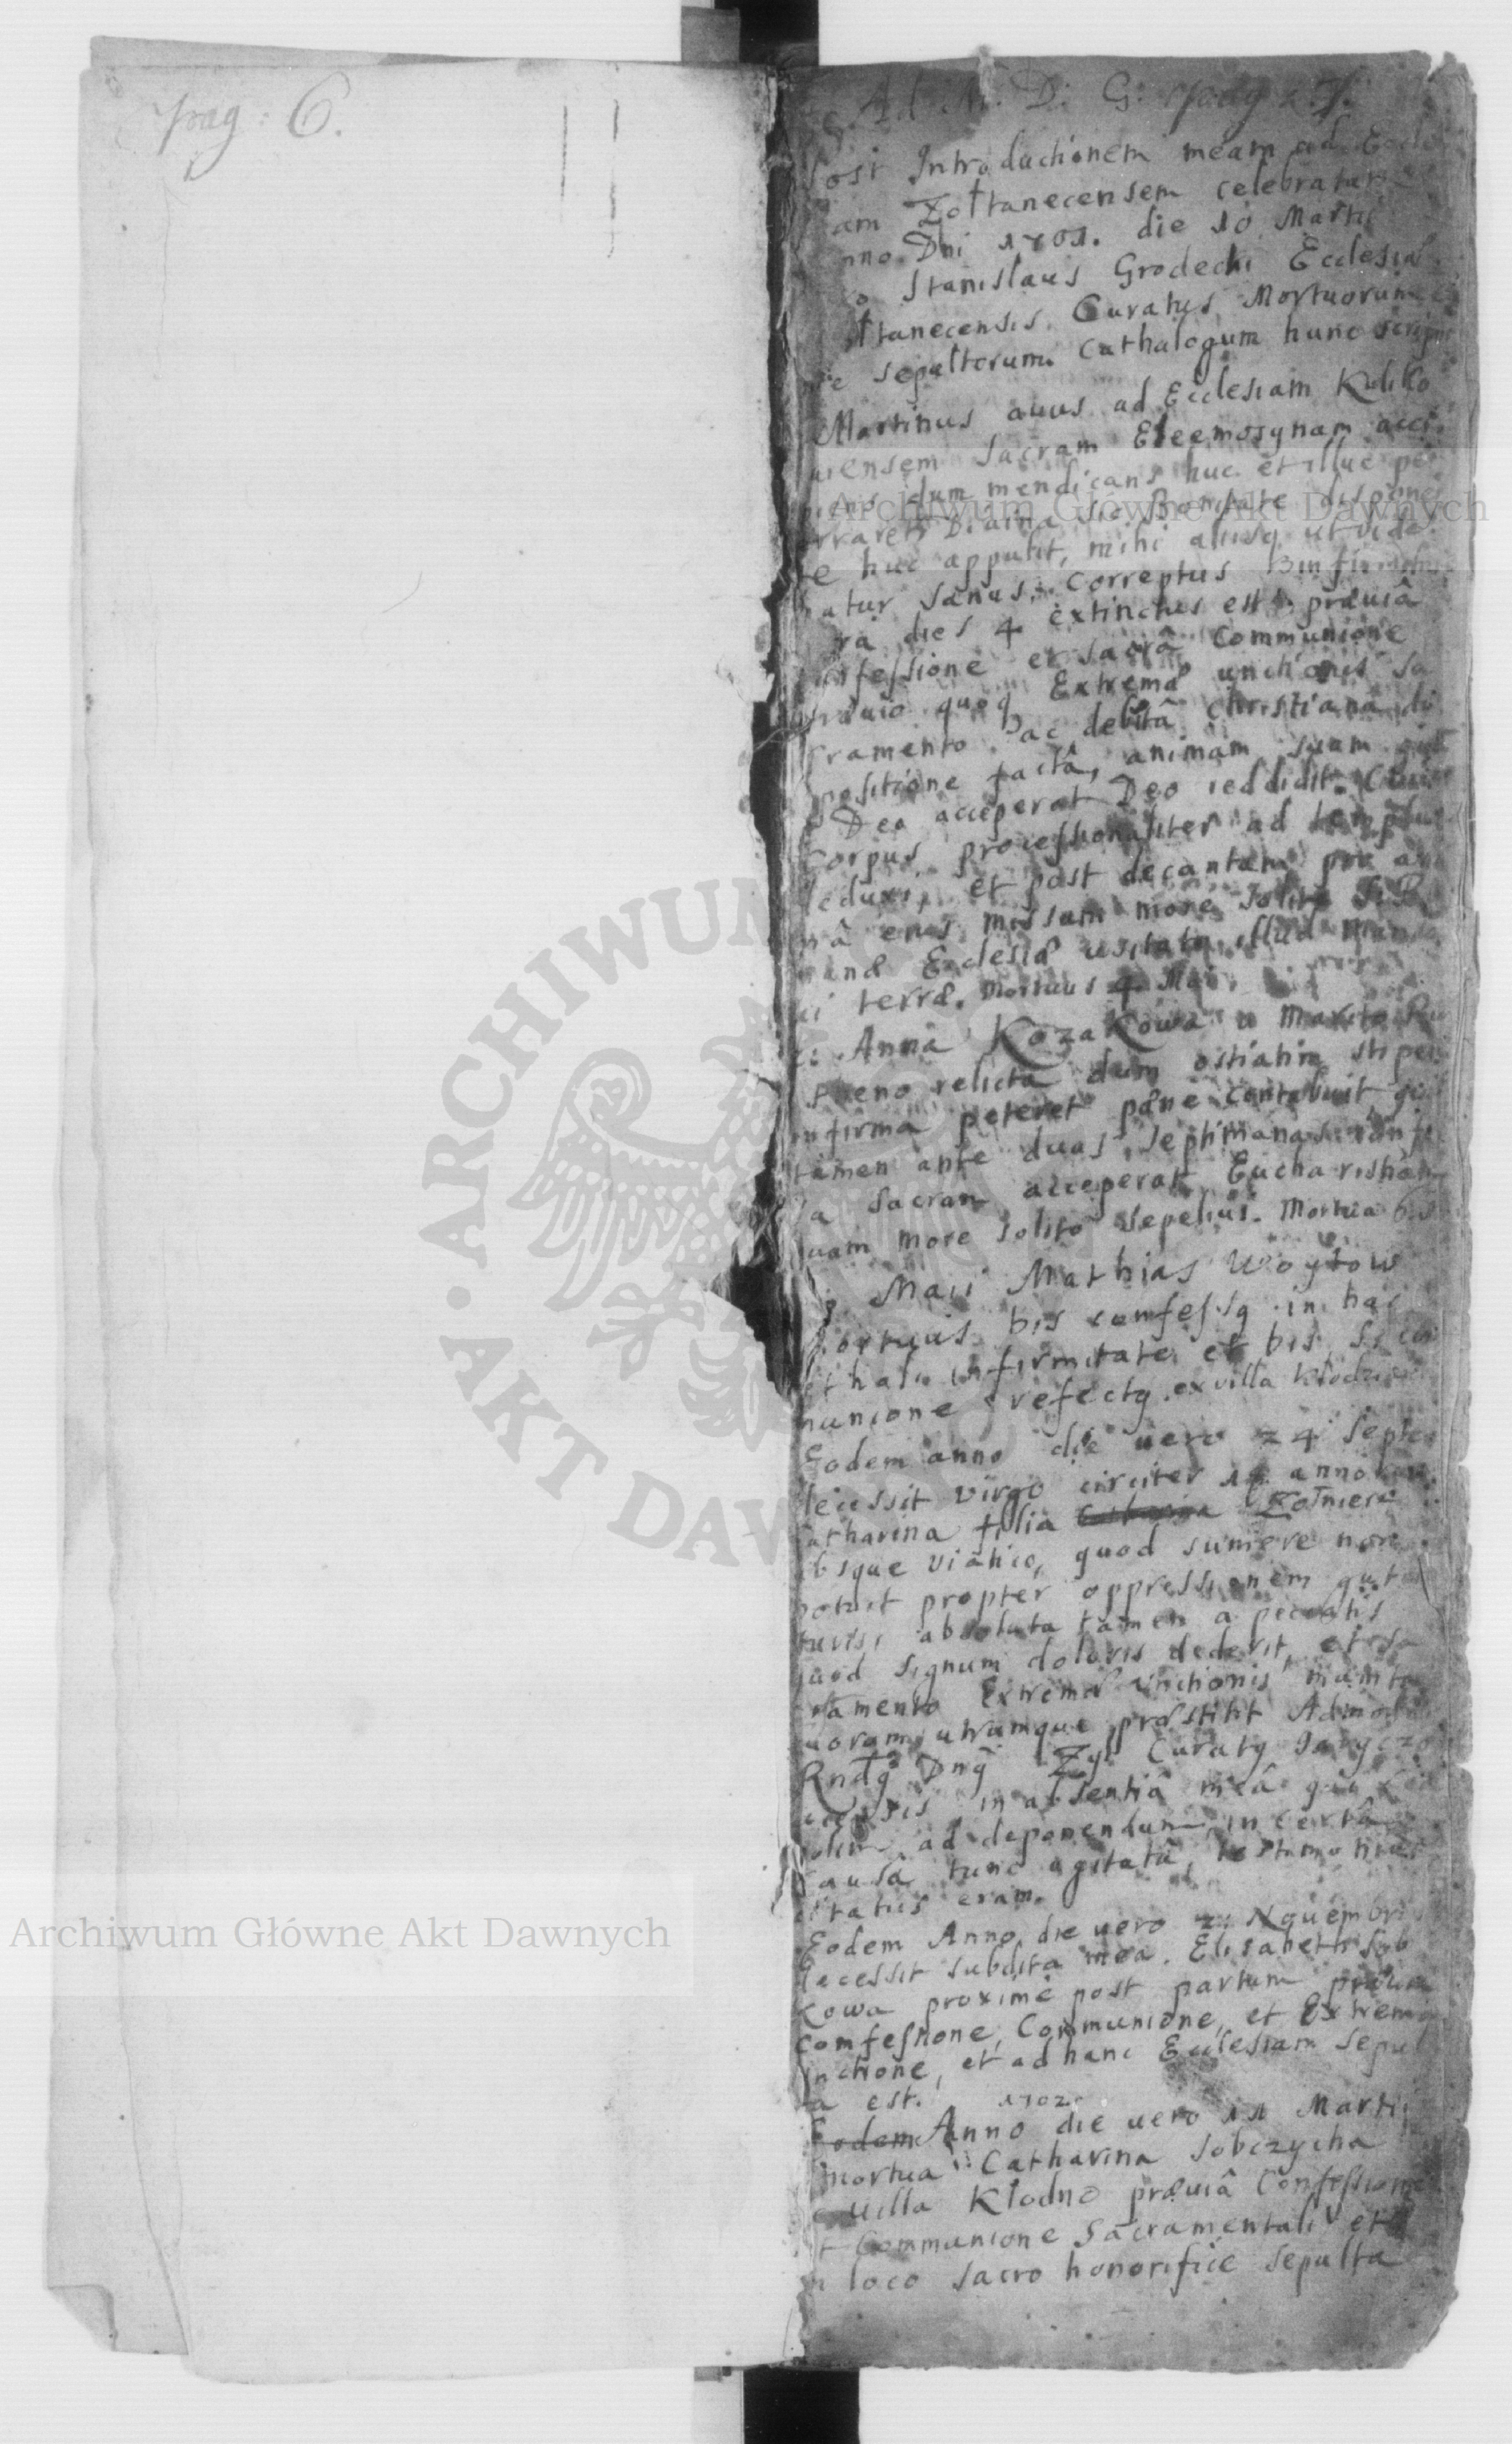 pag: 6.
Ad M. D. G. pag: 7.
Post Introductionem meam ad Eccle
am Żołtanecensem celebratam
nno Dni 1701. die 10 Martii
o Stanislaus Grodecki Ecclesiæ
łtanecensis Curatus Mortuorum
sepultorum Cathalogum hunc scripsi
Martinus auus ad Ecclesiam Kuliko
uiensem sacram Eleemosynam acci
piens dum mendicans huc et illuc per
erraret Diuina sic Bonitate disponen
te huc appulit, mihi aliisq ut vide
batur sanus. Correptus infirmitate
dies 4 extinctus est præuiâ
onfessione et sacrâ Communione
præuio quoq Extremæ unctionis sa
cramento ac debitâ christianâ di
spositione factâ, animam suam
Deo acceperat Deo reddidit. Cuius
corpus processionaliter ad templum
deduxi, et post decantatam pro ani
mâ eius missam more solito S. R.
Ecclesiæ usitato illud manda
ui terræ. Mortuus 4 Mai.
Anna Kozakowa a Marito
relicta dum ostiatim stipem
infirma peteret pæne contabuit
tamen ante duas septimanas confe
sa sacram acceperat Eucharistiam
quam more solito sepeliui. Mortua 6.
Maii Mathias Woytow
mortuus bis confessq in hac
lethali infirmitate et bis S. com
munione refectq ex villa Kłodzien
Eodem anno die uero 24 Septe
decessit virgo circiter annorum
Catharina filia Żołnierz
absque viatico, quod sumere non
potuit propter oppressionem gut
turis, absoluta tamen a peccatis
quod signum doloris dederit, et sa
cramento Extremæ Unctionis munita
quorum utrumque præstitit Admodum
Rndq Dnq Curatq Jaryczo
uiensis in absentiâ meâ quia
ad deponendum in certâ
causâ tunc agitatâ, testimonium
citatus eram.
Eodem Anno die uero 2 Nouembris
decessit subdita mea Elisabeth Sob
kowa proxime post partum præuia
confessione, Communione, et Extrema
unctione, et ad hanc Ecclesiam sepul
ta est. 1702.
Eodem Anno die uero 11 Martii
mortua Catharina Sobczycha
e uilla Kłodno præuiâ Confessione
et Communione Sacramentali et
in loco sacro honorifice sepulta
Archiwum Główne Akt Dawnych
Archiwum Główne Akt Dawnych
ARCHIWUM
AKT DAWNYCH